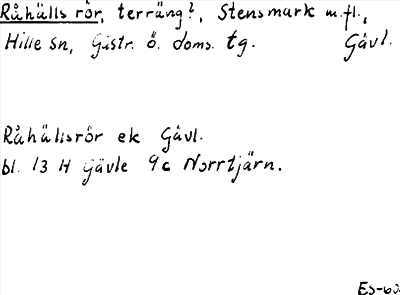 Råhälls rör, terräng?, Stensmark m.fl.,
Hille sn, Gästr. ö. doms. tg. Gävl.
Råhällsrör ek Gävl.
bl. 13 H Gävle 9c Norrtjärn.